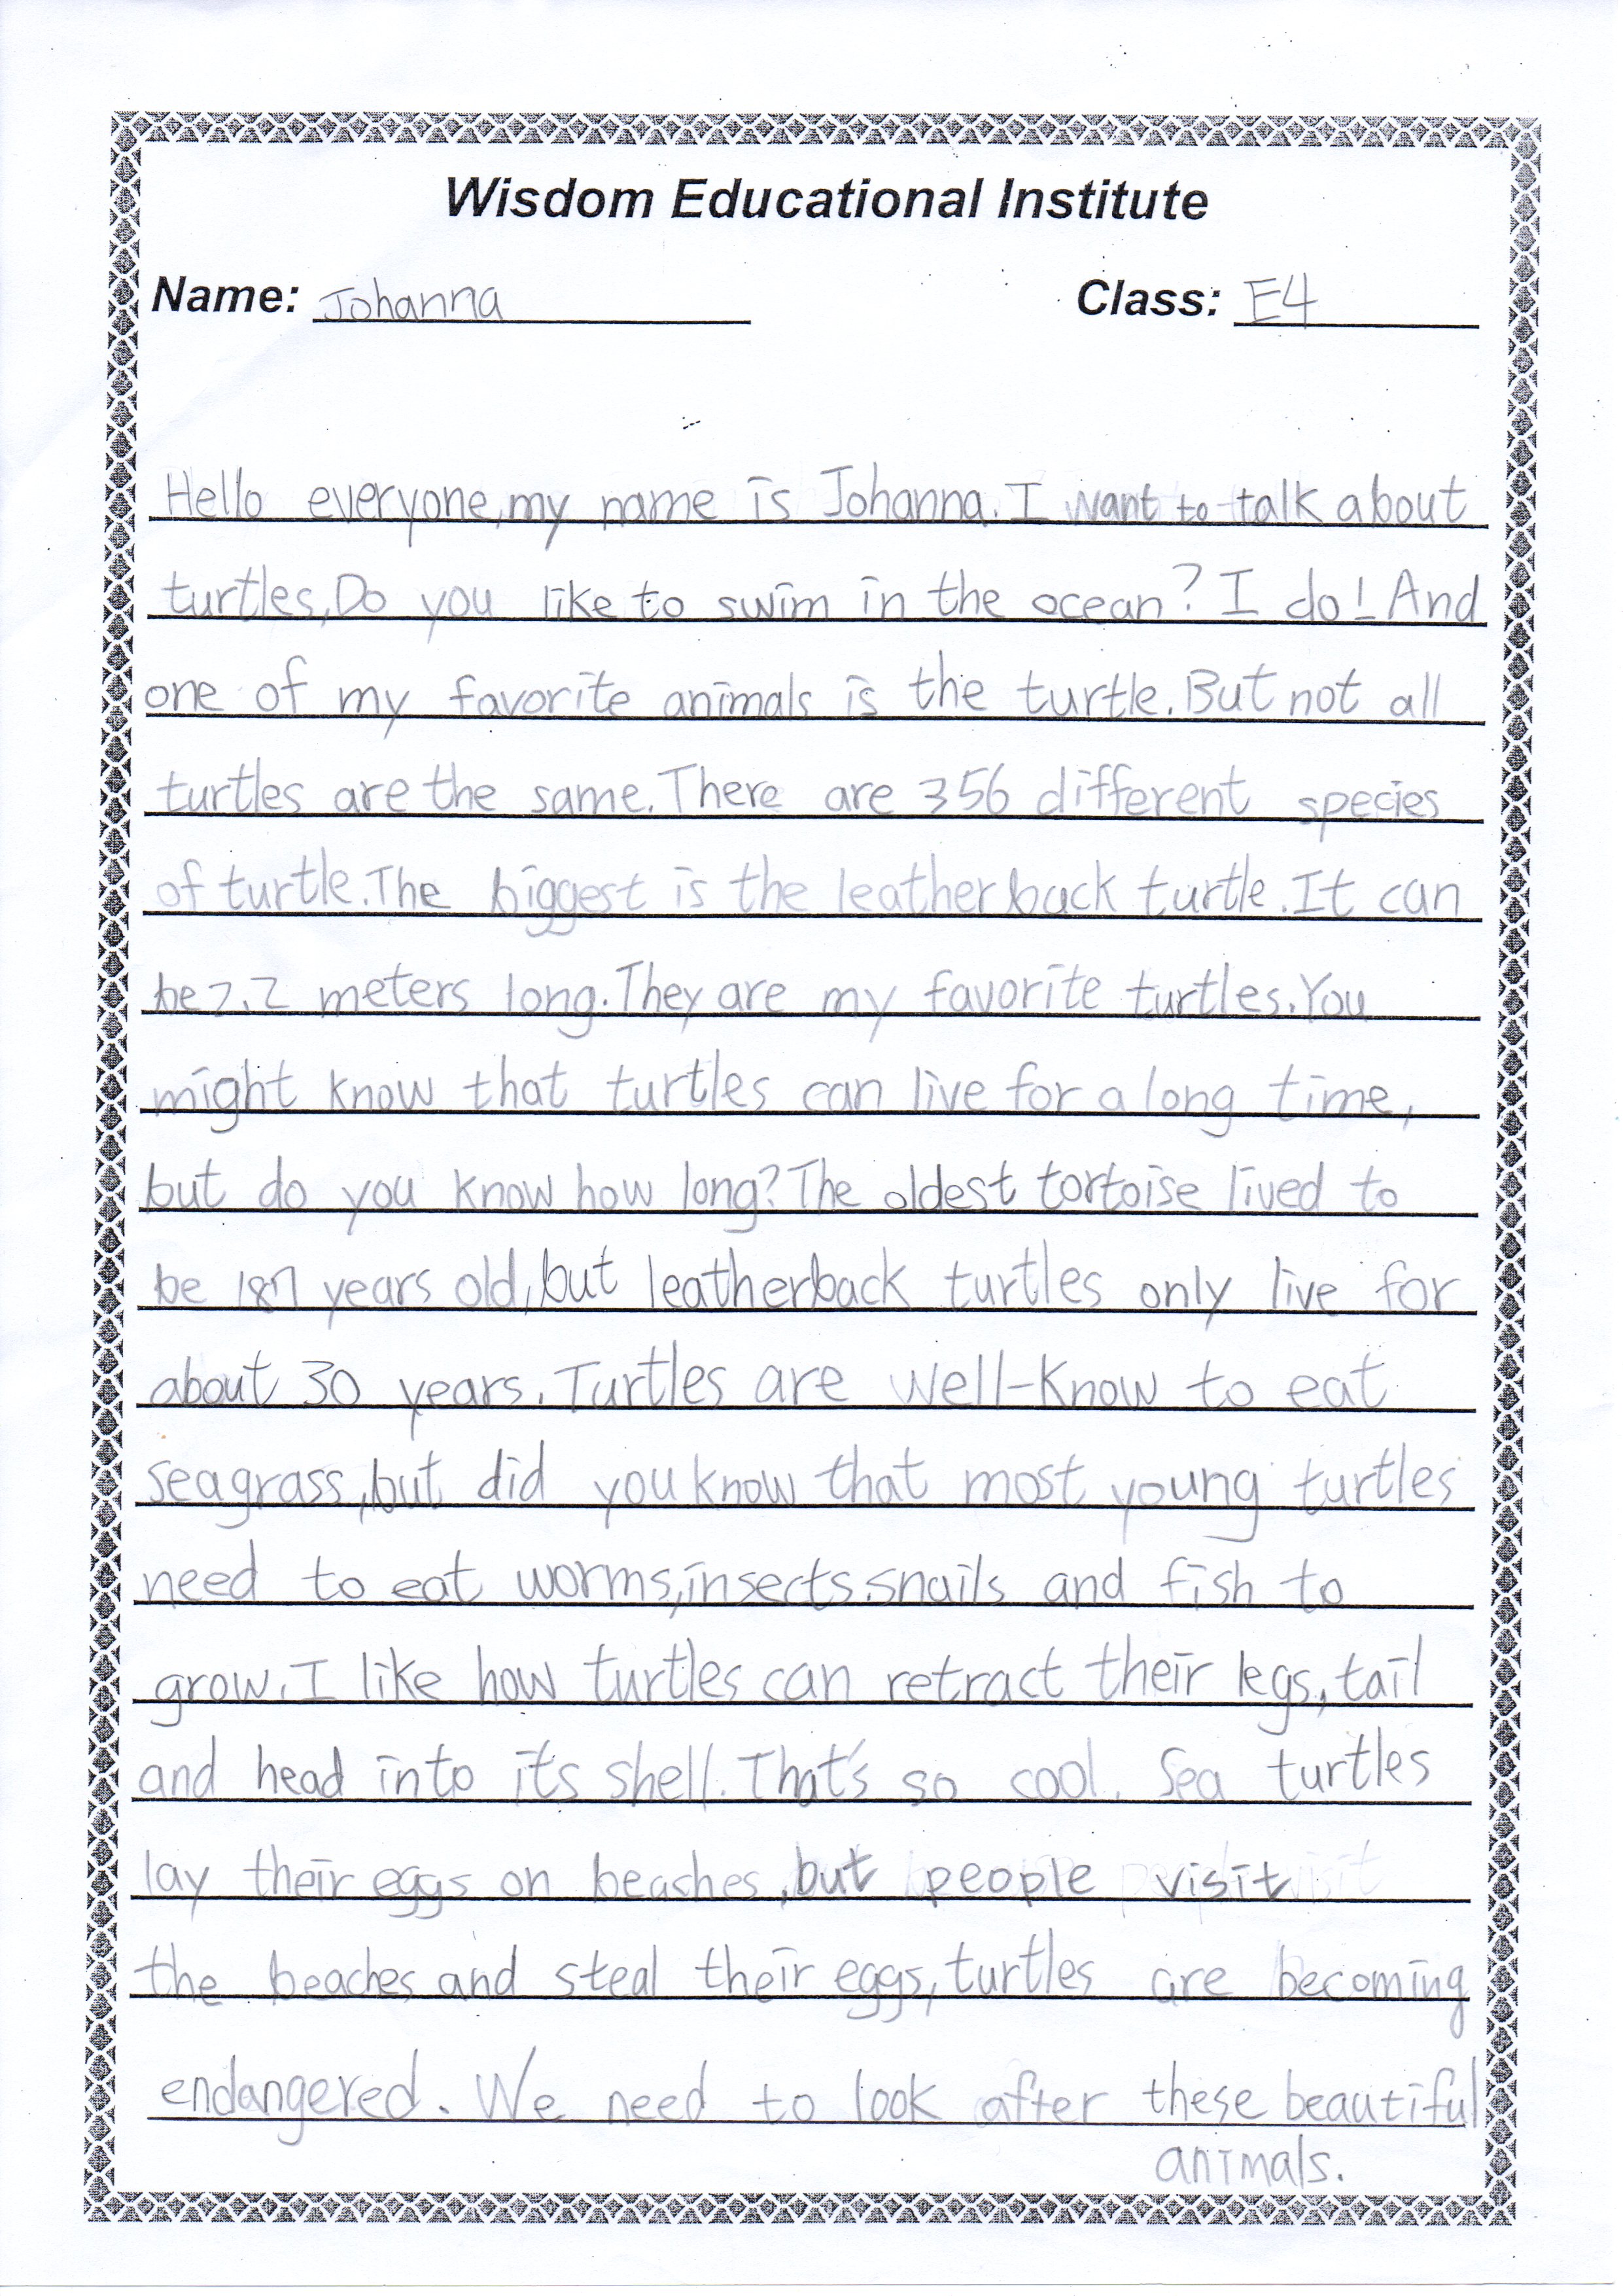 Wisdom Educational Institute
Name: Johanna Class: E4
Hello everyone, my name is Johanna. I want to talk about
turtles, Do you like to swim in the ocean? I do! And
one of my favorite animals is the turtle. But not all
turtles are the same. There are 356 different species
of turtle. The biggest is the leatherback turtle. It can
be 2.2 meters long. They are my favorite turtles. You
might know that turtles can live for a long time,
but do you know how long? The oldest tortoise lived to
be 187 years old, but leatherback turtles only live for
about 30 years. Turtles are well-know to eat
seagrass, but did you know that most young turtles
need to eat worms, insects, snails and fish to
grow. I like how turtles can retract their legs, tail
and head into its shell. That's so cool. Sea turtles
lay their eggs on beaches, but people visit
the beaches and steal their eggs, turtles are becoming
endangered. We need to look after these beautiful
animals.